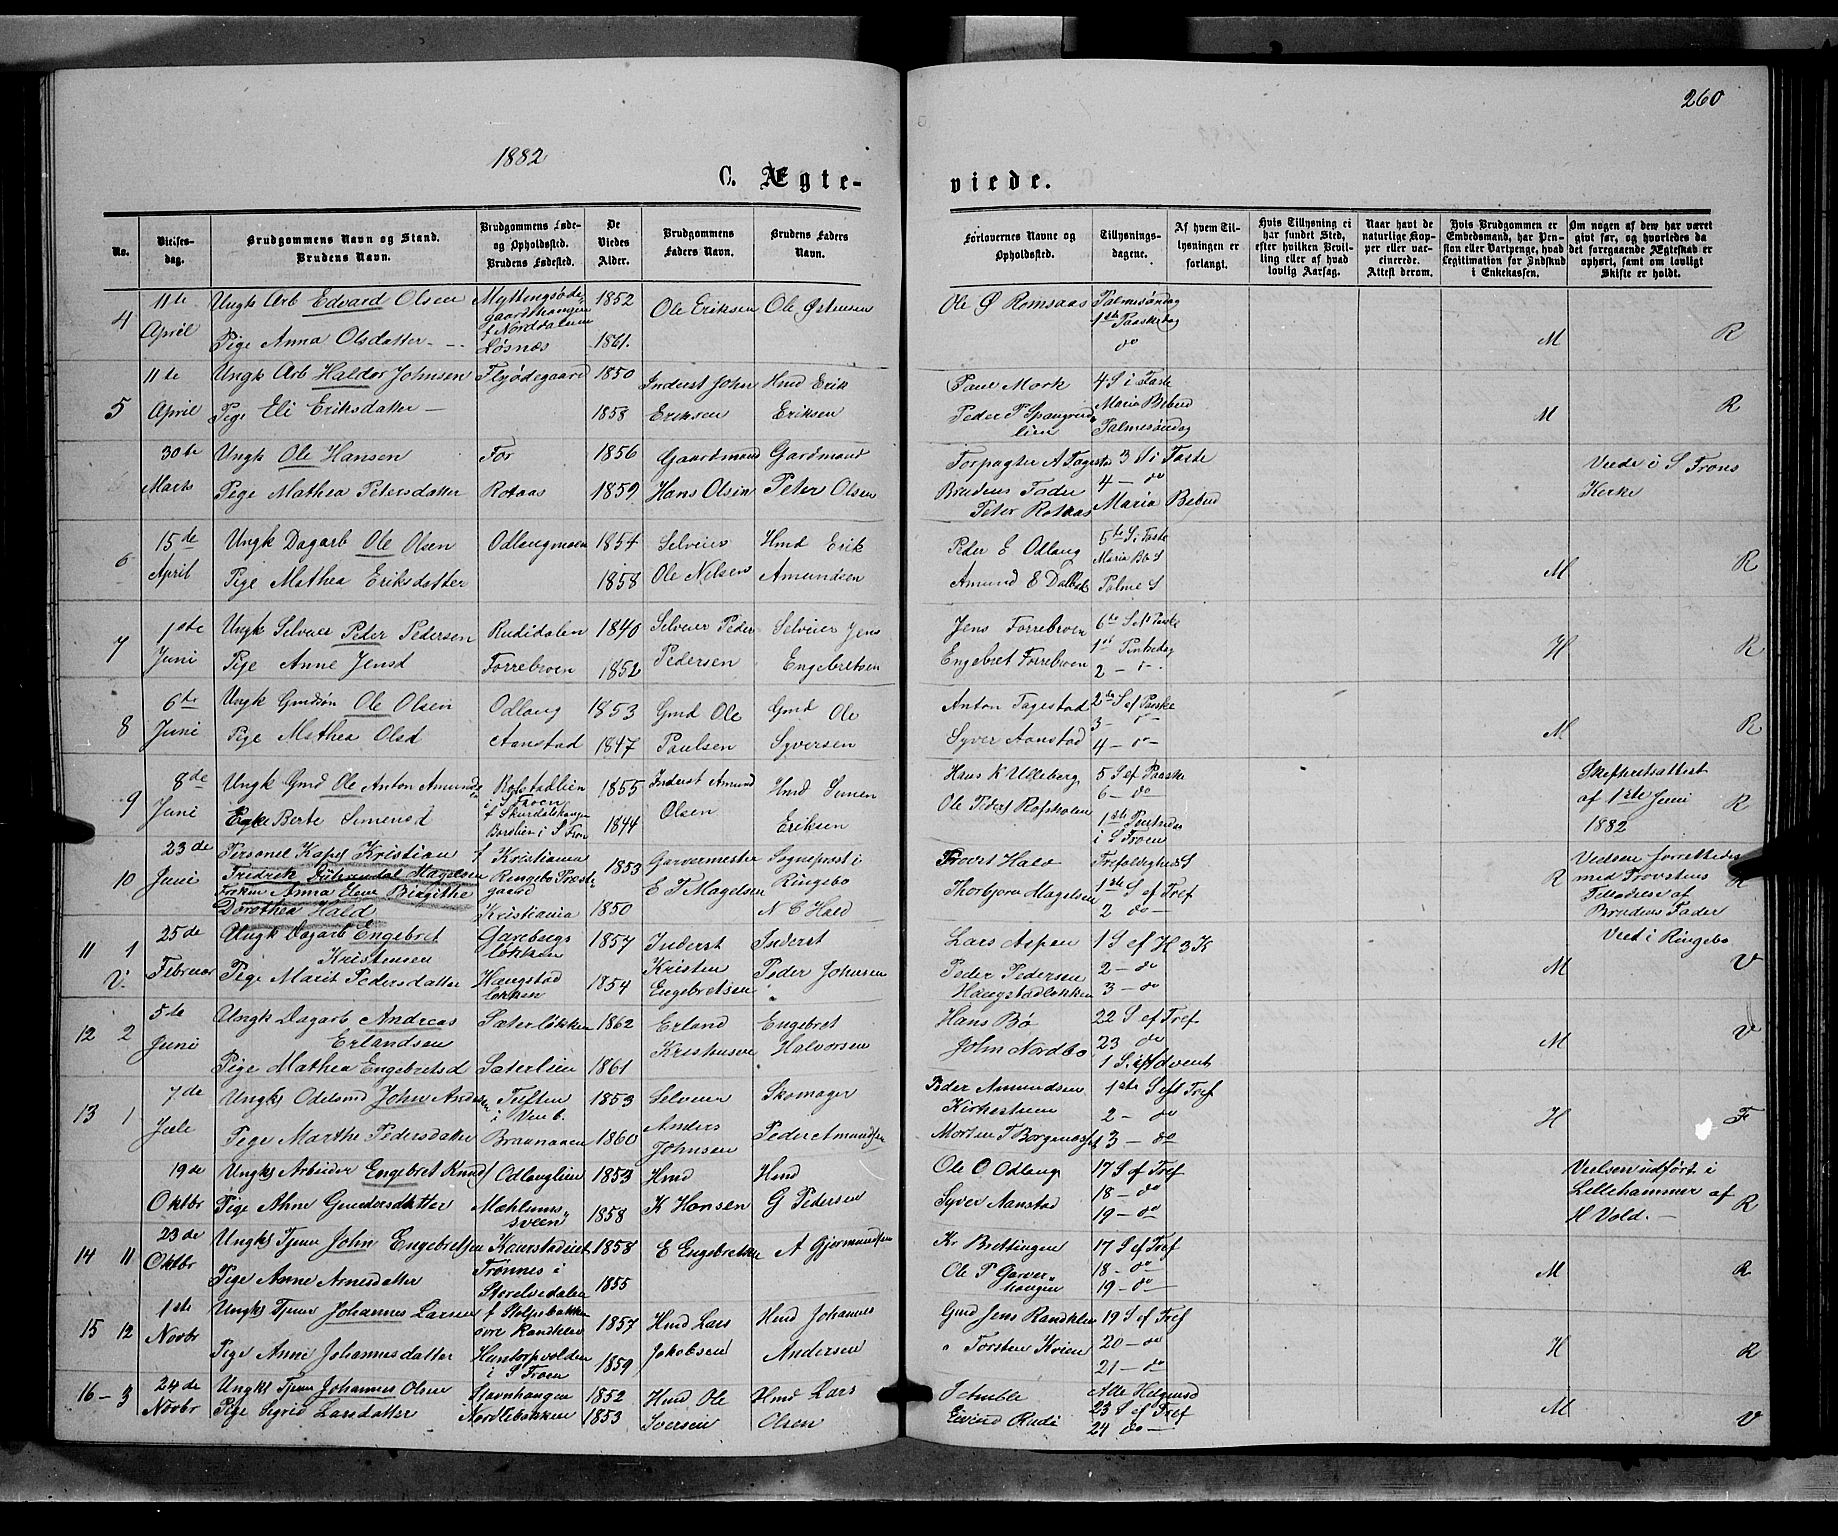 260
1882
C. Ægte-
viede.
No.
Vielses-
dag.
Brudgommens Navn og Stand.
Brudens Navn.
Brudgommens Føde-
og Opholdssted.
Brudens Fødested.
De
Viedes
Alder.
Brudgommens
Faders Navn.
Brudens Faders
Navn.
Forlovernes Navne og
Opholdssted.
Tillysnings-
dagene.
Af hvem Til-
lysningen er
forlangt.
Hvis Tillysning ei
har fundet Sted,
efter hvilken Bevil-
ling eller af hvad
lovlig Aarsag.
Naar havt de
naturlige Kop-
per eller vac-
cinerede.
Attest derom.
Hvis Brudgommen er
Embedsmand, har Pen-
sion eller Vartpenge, hvad
Legitimation for Indskud
i Enkekassen.
Om nogen af dem har været
gift før, og hvorledes da
det foregaaende Ægteskab er
ophørt, samt om lovligt
Skifte er holdt.
4
11te
April
Ungk Arb Edvard Olsen
Pige Anna Olsdatter
Norddalen
Løsnæs
1852
1861.
Ole Eriksen
Ole Østensen
Ole Ø Romsaas
Palmesøndag
1ste Paaskedag
do
M
R
5
11te
April
Ungk Arb Haldor Johnsen
Pige Eli Eriksdatter
Flyødegaard
1850
1858
Inderst John
Eriksen
Hmd Erik
Eriksen
Paul Mork
Peder P Spangrud
lien
4 S i Faste
Maria Bebud
Palmesøndag
M
R
30te
Marts
Ungk Ole Hansen
Pige Mathea Petersdatter
For
Rotaas
1856
1859
Gaardmand
Hans Olsen
Gardmand
Peter Olsen
Forpagter A Fagesta
Brudens Fader
Peter Rotaas
3 S i Faste
4 - do
Maria Bebud
Viede i S Frons
Kerke
6
15de
April
Ungk Dagarb Ole Olsen
Pige Mathea Eriksdatter
Odlaugmoen
1854
1858
Selveier
Ole Nelsen
Hmd Erik
Amundsen
Peder E Odlaug
Amund E Dalbak
5te S i Faste
Maria Bb S
Palme S
M
R
7
1ste
Juni
Ungk Selveier Peder Pedersen
Pige Anne Jensd
Rudidalen
Forrebroen
1840
1852
Selveier Peder
Pedersen
Selveier Jens
Engebretsen
Jens Forrebroen
Engebret Forrebroen
6te S ef Paaske
1st Pintsedag
2 - do
H
R
8
6te
Juni
Ungk Gmdsøn Ole Olsen
Pige Mathea Olsd
Odlaug
Aanstad
1853
1847
Gmd Ole
Paulsen
Gmd Ole
Syversen
Anton Fagestad
Syver Aanstad
2de S ef Paaske
3 - do
4 - do
M
R
9
8de
Juni
Ungk Gmd Ole Anton Amunds
Enke Berte Simensd
Rofstadlien
i S Froen
f Skurdalshaugen
Bordlien i S Fron
1855
1844
Inderst Amund
Olsen
Hmd Simen
Eriksen
Hans K Ulleberg
Ole Peders Rofsholen
5 S ef Paaske
6 - do
1ste Pintsedag
i S Froen
Skifteretsattest
af 1ste Juni
1882
R
10
23de
Juni
Personel Kapel Kristian
Fredrik Magelsen
Frøken Anna Elene Birgithe
Dorothea Hald
f Kristiania
Ringebo Præste-
gaard
Kristiania
1853
1850
Garvermester
E T Magelsen
Sogneprest i
Ringebo
N C Hald
Provst Hald
Thorbjørn Magelsen
Trefoldigheds S
1ste S ef Tref
2 do
R
Vielsen forrettedes
med Provstens
Tilladelse af
Brudens Fader
R
11 1
V.
25de
Februar
Ungk Dagarb Engebret
Kristensen
Pige Marit Pedersdatter
løkken
Haugstad
løkken
1857
1854
Inderst
Kristen
Engebretsen
Inderst
Peder Johnsen
Lars Aspen
Peder Pedersen
Haugstadløkken
1 S ef H 3 K
2 - do
3 - do
M
Vied i Ringebo
V
12 2
5te
Juni
Ungk Dagarb Andreas
Erlandsen
Pige Mathea Engebretsd
Saterløkken
Saterlien
1862
1861
Erland
Kristiansen
Engebret
Halvorsen
Hans Bø
John Nordbo
22 S ef Tref
23 do
1 S i Advent
M
V
13 1
7de
Juli
Ungk Odelsmd John Anders
Pige Marthe Pedersdatter
Tuften
i Ven b.
Braanaaen
1853
1860
Selveier
Anders
Johnsen
Skomager
Peder Amundsen
Peder Amundsen
Kirkestuen
Morten T Borgenaasen
1ste S eft Tref
2 - do
3 - do
H
F
19de
Oktbr
Ungk Arbeider Engebret Knuds
Pige Ahne Gundersdatter
f Odlauglien
Mæhlums
sveen
1853
1858
Hmd
K Hansen
Hmd
G Pedersen
Ole O Odlaug
Syver Aanstad
17 S ef Tref
18 - do
19 - do
Vielsen udført i
Lillehammer af
H Vold. -
R
14 11
23de
Oktbr
Ungk Tjener John Engebretsen
Pige Anne Arnesdatter
Kaurstadeiet
Trønnes i
Storelvedalen
1858
1855
E Engebretsen
A Gjermundsen
Kr Brettingen
Ole P Garver
haugen
17 S ef Tref
18 - do
19 - do
M
R
15 12
1ste
Novbr
Ungk Tjener Johannes Larsen
Pige Anne Johannesdatter
f Stolpesbakken
øvre Randklev
Huntorpvolden
i S Froen
1857
1859
Hmd Lars
Jakobsen
Hmd Johannes
Andersen
Gmd Jens Randklev
" Torsten Kvien
19 S ef Tref
20 - do
21 - do
H
R
16 - 3
24de
Novbr
Ungk Tjener Johannes Olsen
Pige Sigrid Larsdatter
Stavnhaugen
Nordlebakken
1852
1853
Hmd Ole
Iversen
Hmd Lars
Olsen
J Amble
Eivind Rudi
Alle Helgensd
23 S ef Tref
24 do
M
V